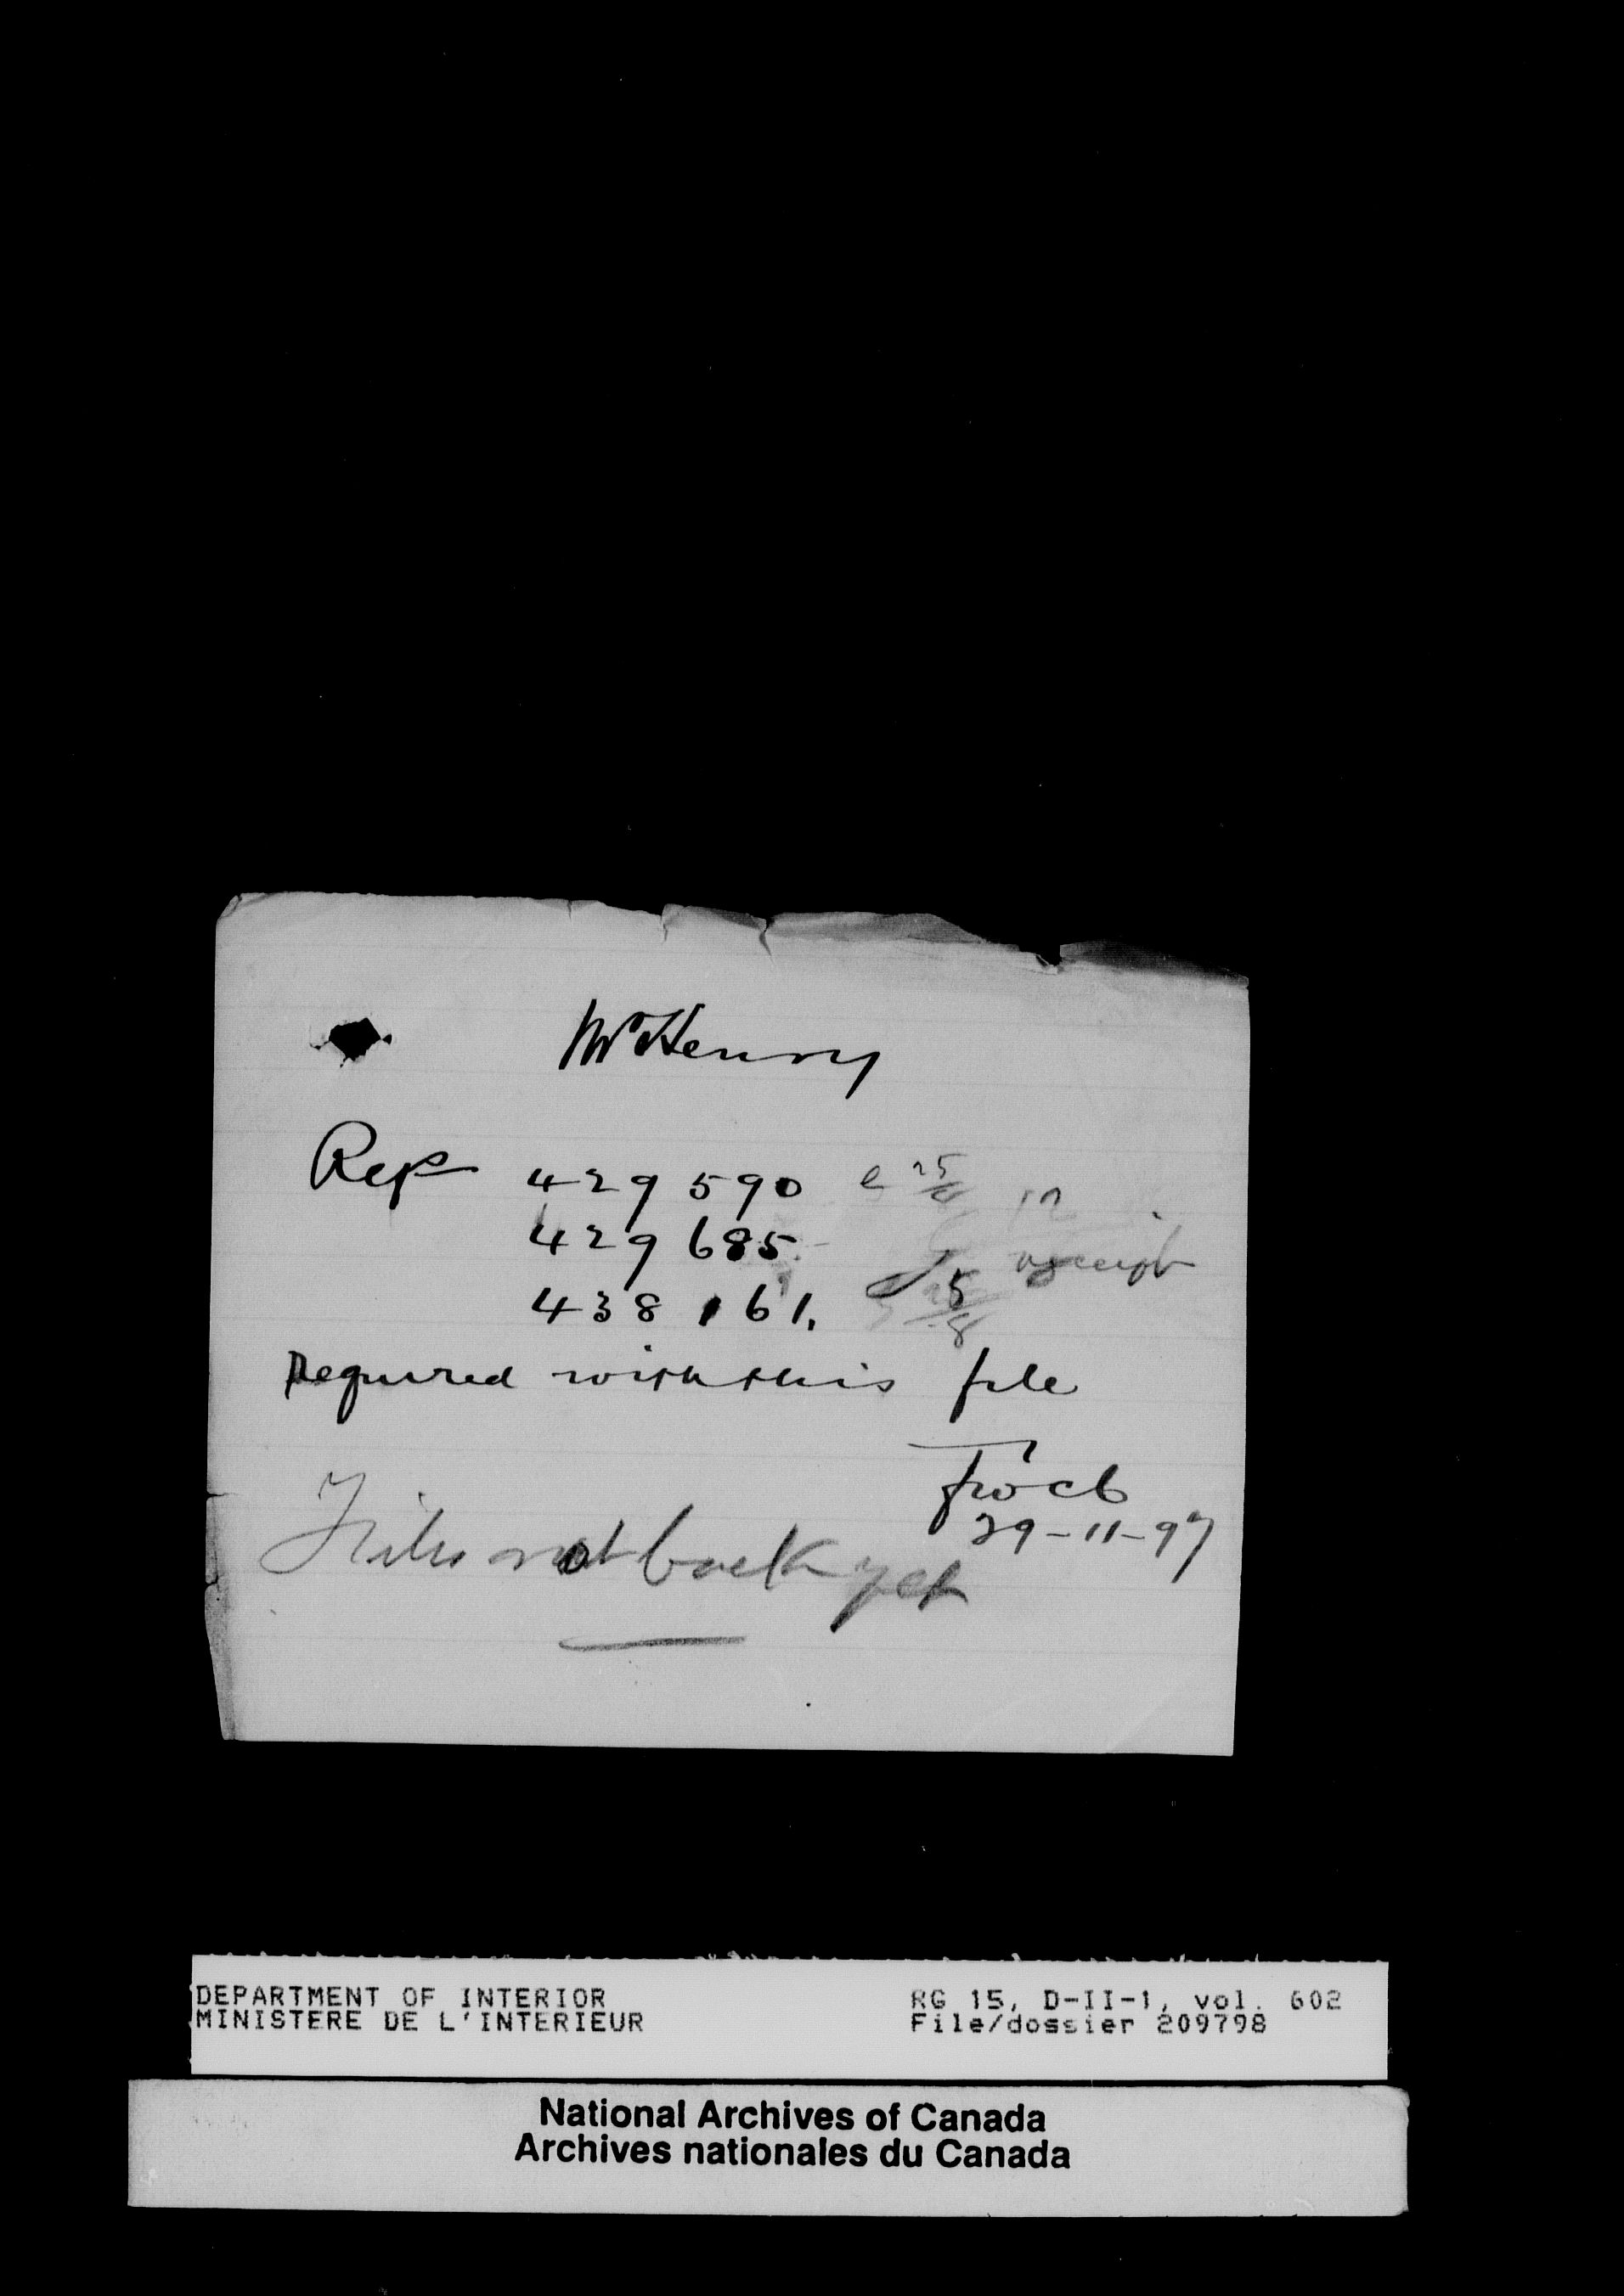 McHenry
Ref 429 590
429 685
438 161.
Required with this file
29-11-97
Files not back yet
DEPARTMENT OF INTERIOR
MINISTERE DE L'INTERIEUR
RG 15, D-II-1, vol. 602
File/dossier 209798
National Archives of Canada
Archives nationales du Canada